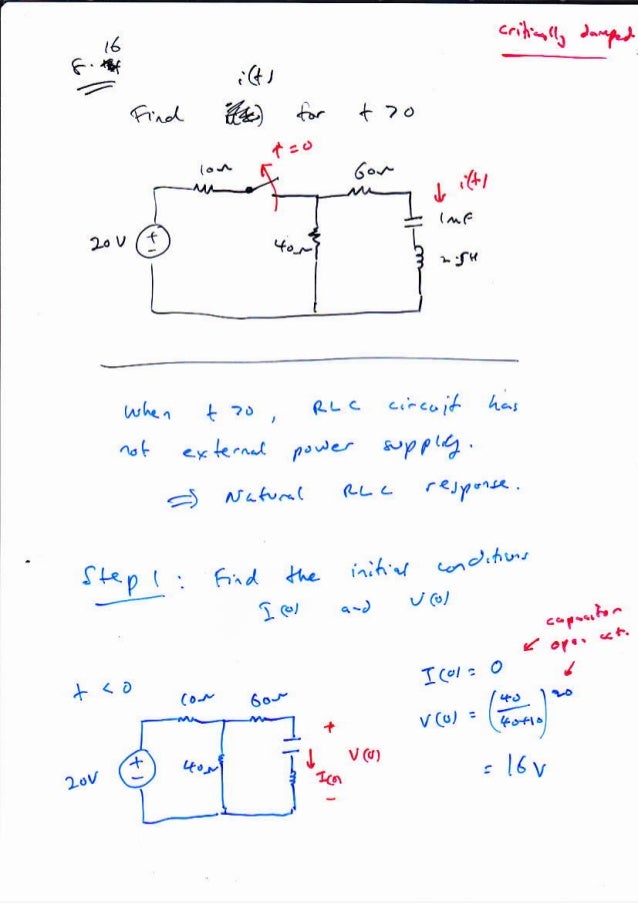 critically damped
8.16
i(t)
Find for t > 0
t = 0
10Ω
60Ω
i(t)
1mF
20V
40Ω
2.5H
When t > 0, RLC circuit has
not external power supply.
⇒ Natural RLC response.
Step 1 : Find the initial conditions
I(0) and V(0)
capacitor
open cct.
t < 0
I(0) = 0
10Ω
60Ω
V(0) = (40/40+10) 20
= 16V
20V
40Ω
+
V(0)
I(0)
-